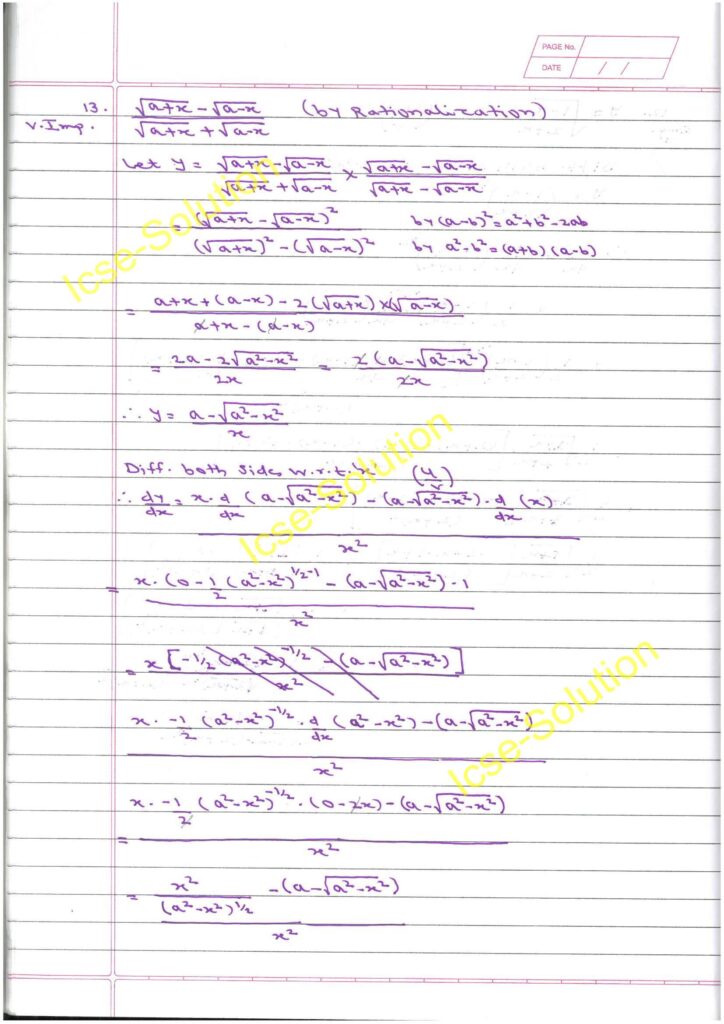 PAGE No.
DATE / /
13. √a+x - √a-x / √a+x + √a-x (by Rationalization)
V.Imp.
Let y = √a+x - √a-x / √a+x + √a-x × √a+x - √a-x / √a+x - √a-x
= (√a+x - √a-x)² / (√a+x)² - (√a-x)² by (a-b)² = a²+b²-2ab
by a²-b² = (a+b) (a-b)
= a+x+(a-x) - 2(√a+x)×(√a-x) / a+x - (a-x)
= 2a - 2√a²-x² / 2x = 2(a - √a²-x²) / 2x
∴ y = a - √a²-x² / x
Diff. both sides w.r.t. 'x' (u/v)
∴ dy/dx = x. d/dx (a - √a²-x²) - (a - √a²-x²). d/dx (x) / x²
= x. (0 - 1/2 (a²-x²)^1/2-1 - (a - √a²-x²) . 1 / x²
= x [-1/2 (a²-x²)^-1/2 - (a - √a²-x²)] / x²
x. -1/2 (a²-x²)^-1/2 . d/dx (a²-x²) - (a - √a²-x²) / x²
= x. -1/2 (a²-x²)^-1/2 . (0-2x) - (a - √a²-x²) / x²
= x² / (a²-x²)^1/2 - (a - √a²-x²) / x²
Icse-Solution
Icse-Solution
Icse-Solution